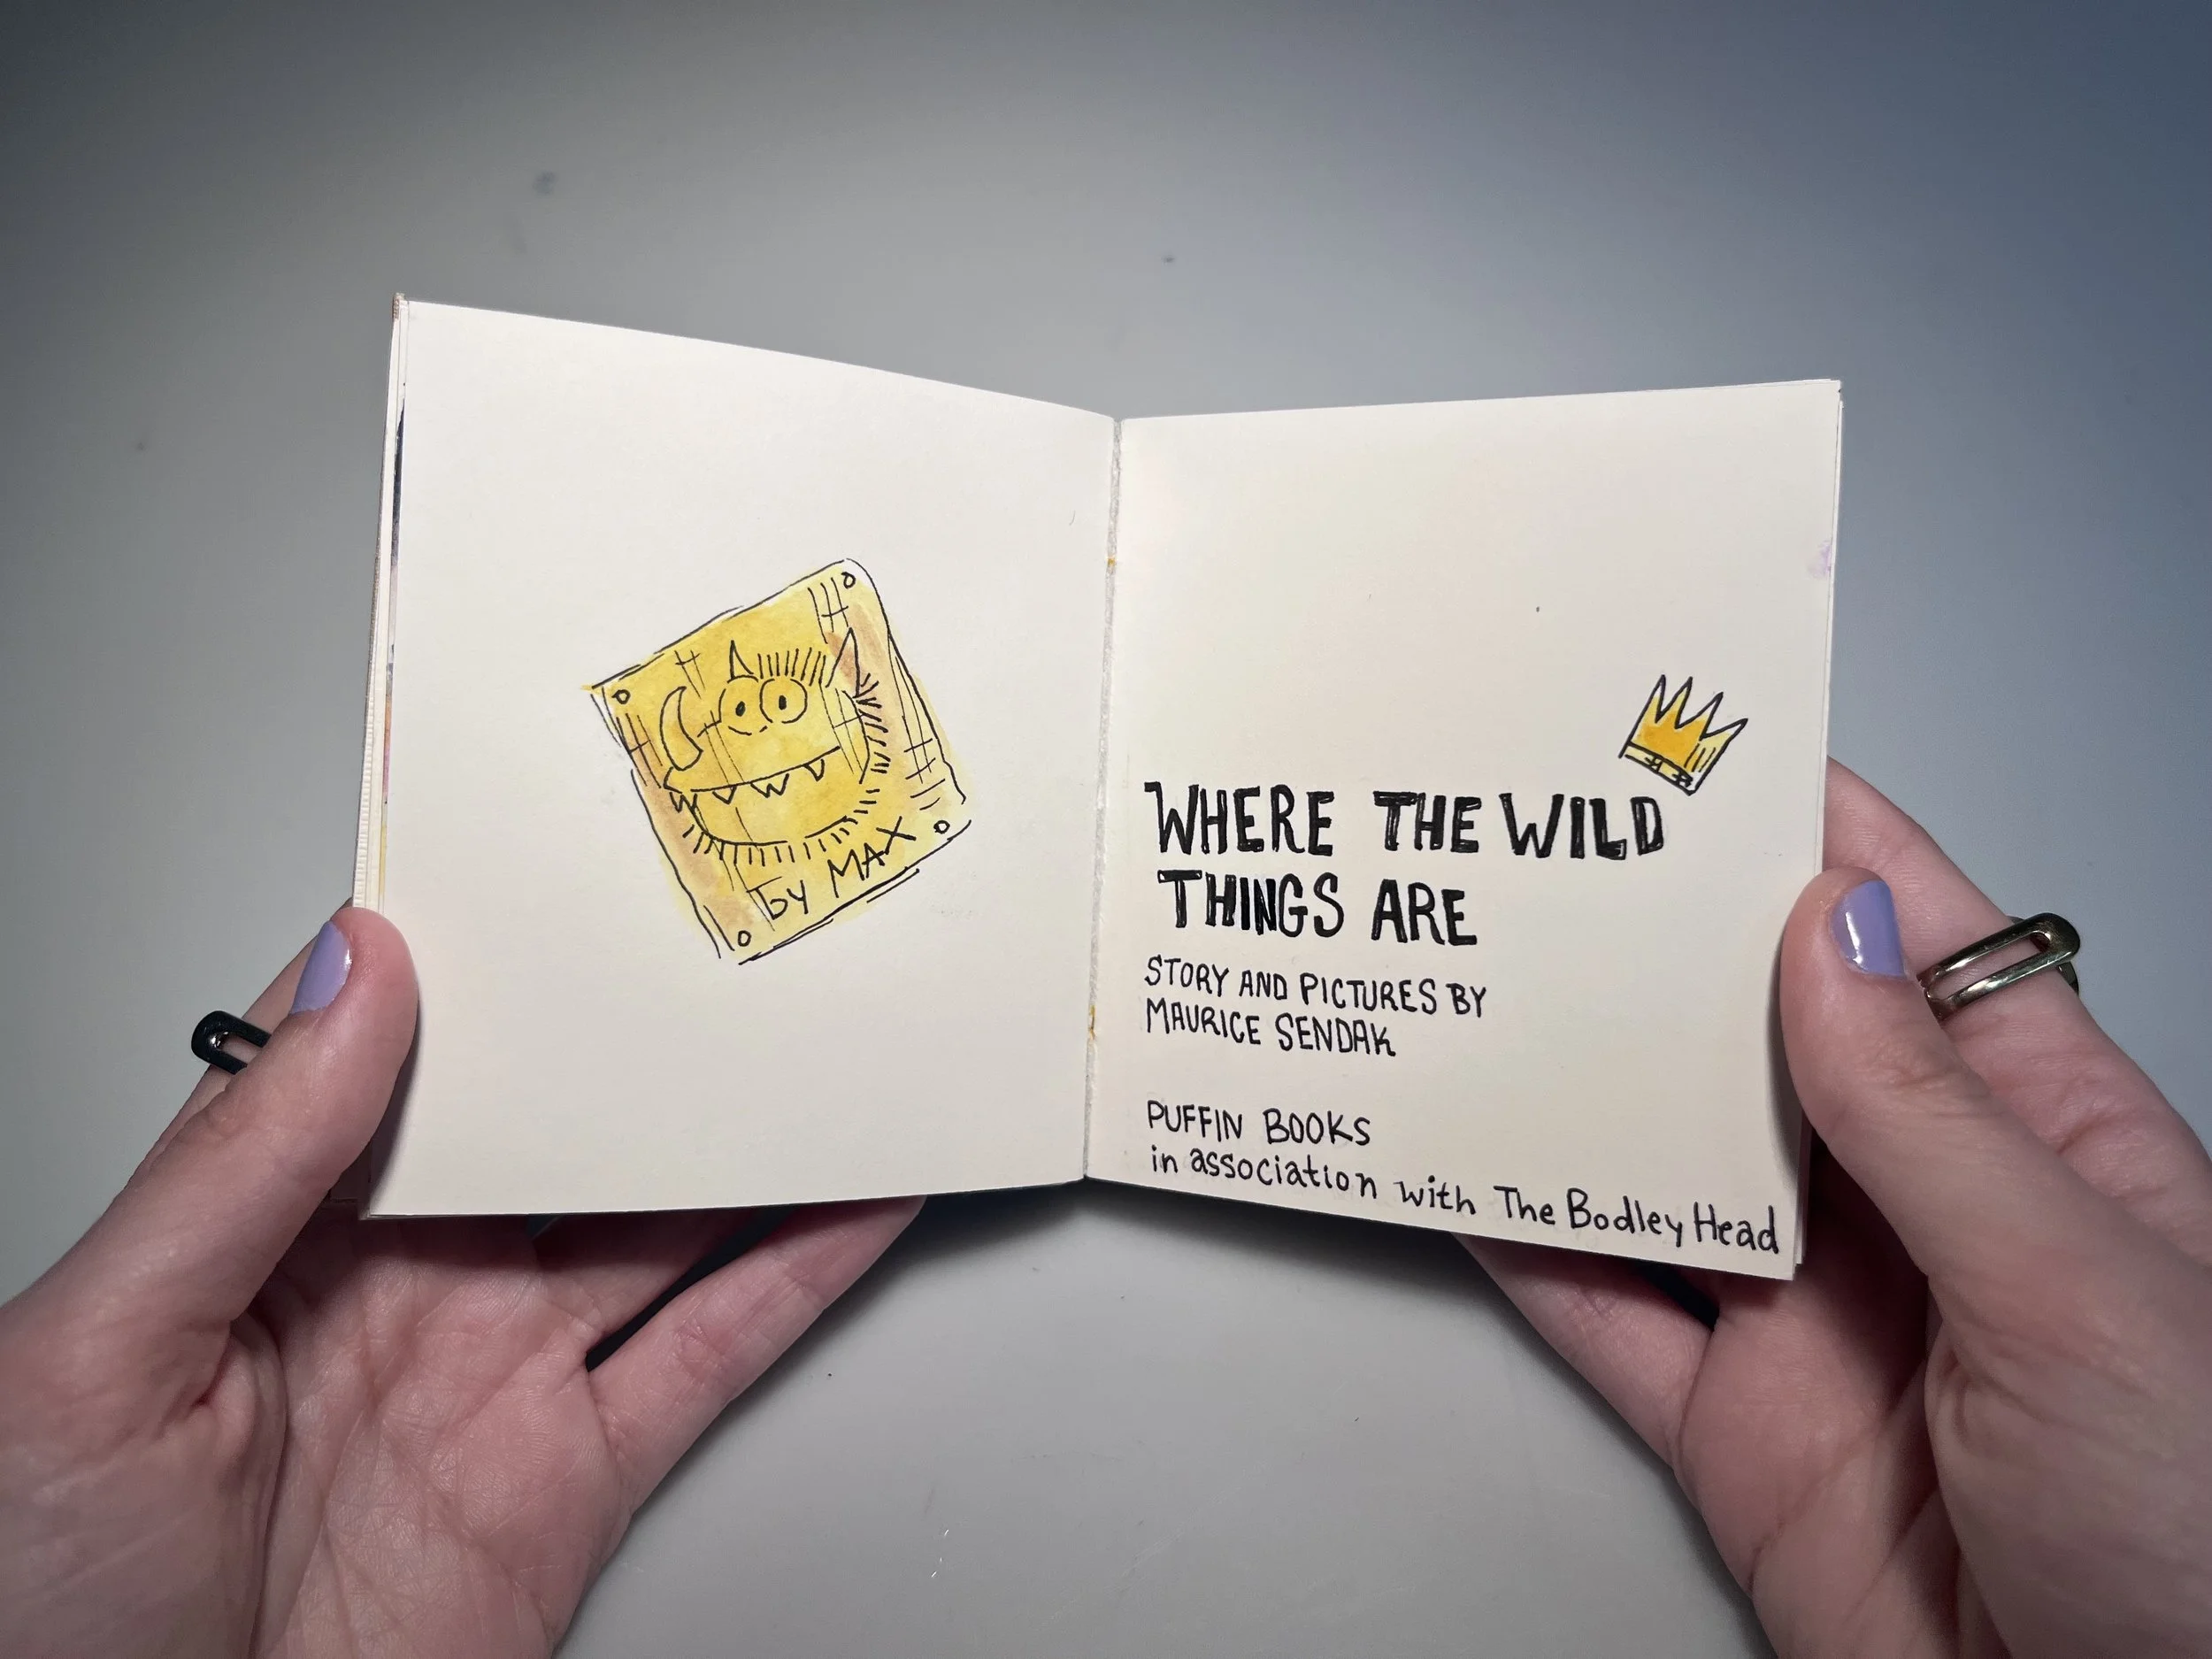 by MAX
WHERE THE WILD
THINGS ARE
STORY AND PICTURES BY
MAURICE SENDAK
PUFFIN BOOKS
in association with The Bodley Head